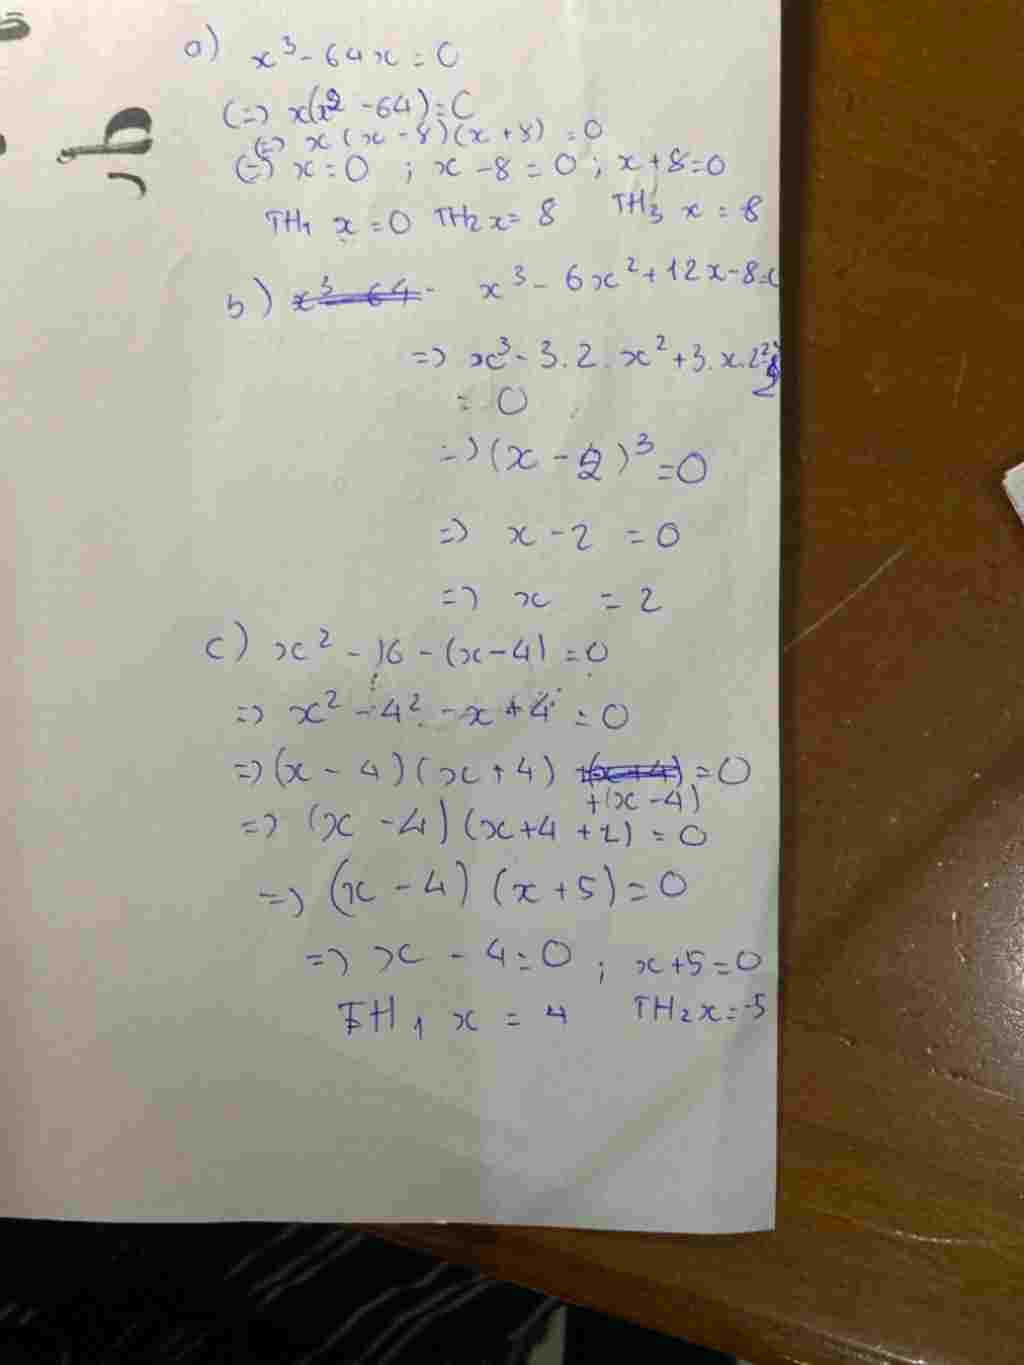 a) x³ - 64x = 0
(=) x(x² - 64) = 0
(=) x (x - 8) (x + 8) = 0
(=) x = 0 ; x - 8 = 0 ; x + 8 = 0
TH₁ x = 0 TH₂ x = 8 TH₃ x = 8
b) x³ - 64 - x³ - 6x² + 12x - 8 = 0
=> x³ - 3.2.x² + 3.x.2² - 2³
= 0
=> (x - 2)³ = 0
=> x - 2 = 0
=> x = 2
c) x² - 16 - (x - 4) = 0
=> x² - 4² - x + 4 = 0
=> (x - 4) (x + 4) +(x+4) = 0
+(x - 4)
=> (x - 4) (x + 4 + 1) = 0
=> (x - 4) (x + 5) = 0
=> x - 4 = 0 ; x + 5 = 0
TH₁ x = 4 TH₂ x = -5